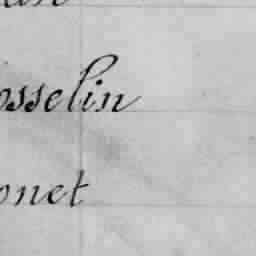 osselin
onet